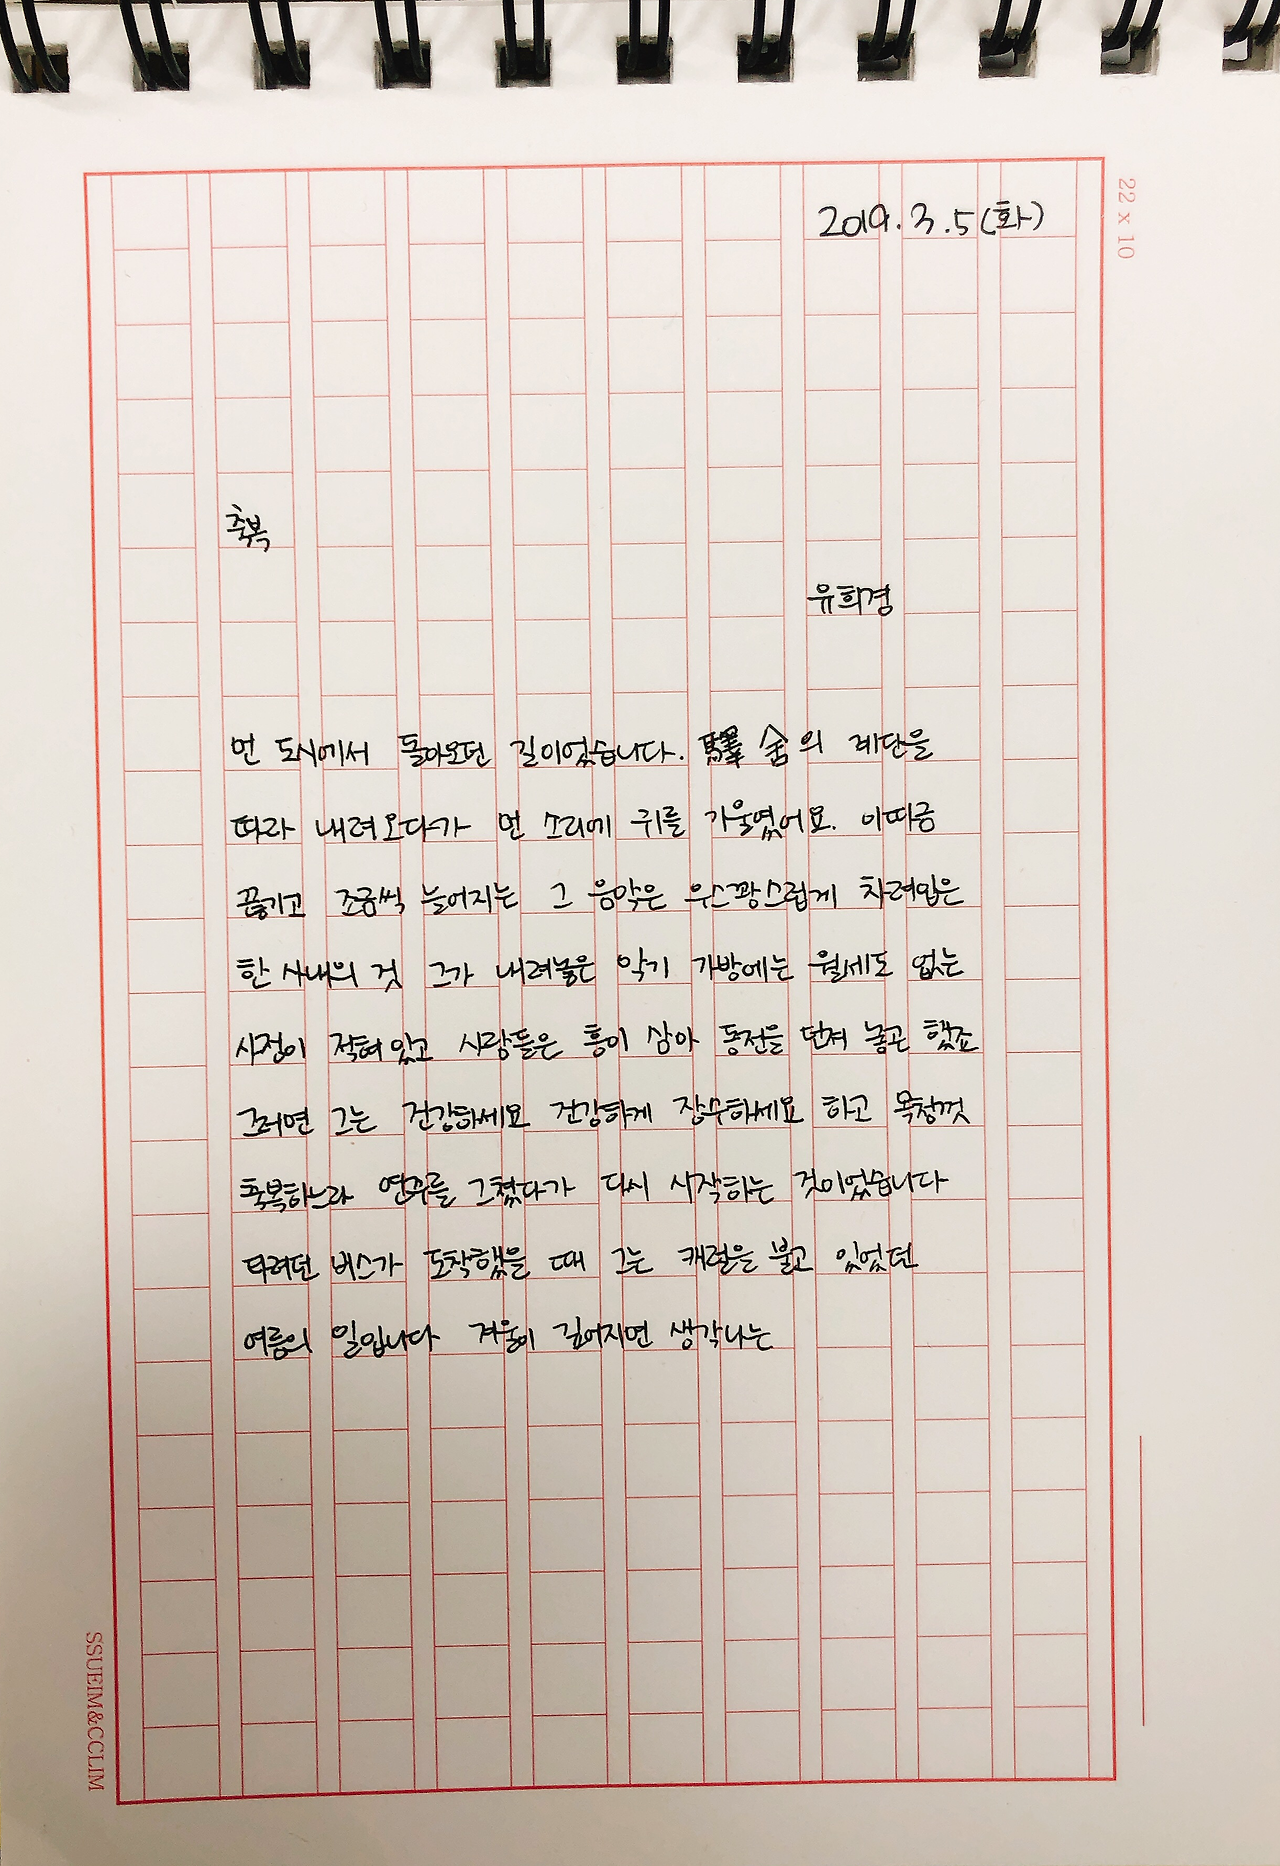 22 x 10
2019.3.5(화)
축복
유희경
먼 도시에서 돌아오던 길이었습니다. 驛舍의 계단을
따라 내려오다가 먼 소리에 귀를 기울였어요. 이따금
끊기고 조금씩 늘어지는 그 음악은 우스꽝스럽게 차려입은
한 사내의 것 그가 내려놓은 악기 가방에는 월세도 없는
사정이 적혀있고 사람들은 흥이 삼아 동전을 던져 놓곤 했죠
그러면 그는 건강하세요 건강하게 장수하세요 하고 목청껏
축복하느라 연주를 그쳤다가 다시 시작하는 것이었습니다
타려던 버스가 도착했을 때 그는 캐럴을 불고 있었던
여름의 일입니다 겨울이 깊어지면 생각나는
SSUEIM&CCLIM